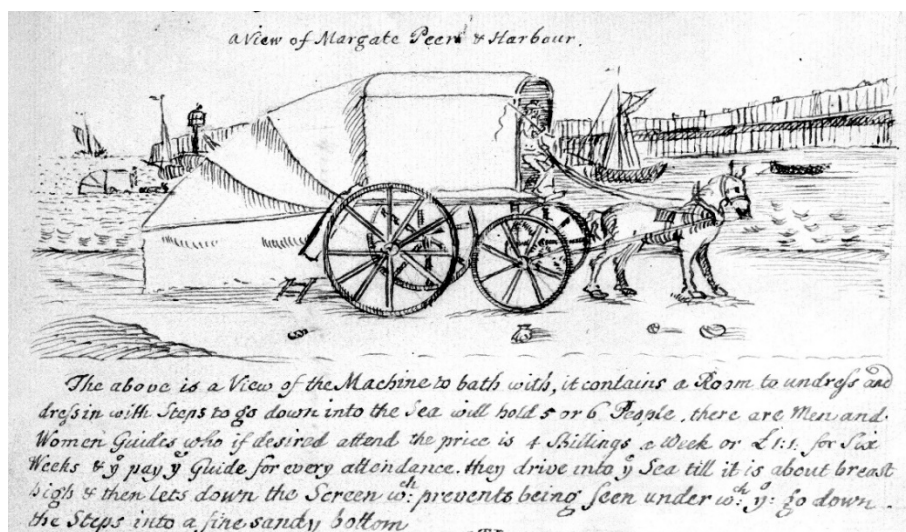 a View of Margate Peer & Harbour.
The above is a View of the Machine to bath with, it contains a Room to undress and
dress in with Steps to go down into the Sea will hold 5 or 6 People, there are Men and
Women Guides who if desired attend the price is 4 Shillings a Week or £1:1: for Six
Weeks & yͦ pay yͤ Guide for every attendance. they drive into yͤ Sea till it is about breast
high & then lets down the Screen wͨͪ: prevents being seen under wͨͪ: yͦ: go down
the Steps into a fine sandy bottom